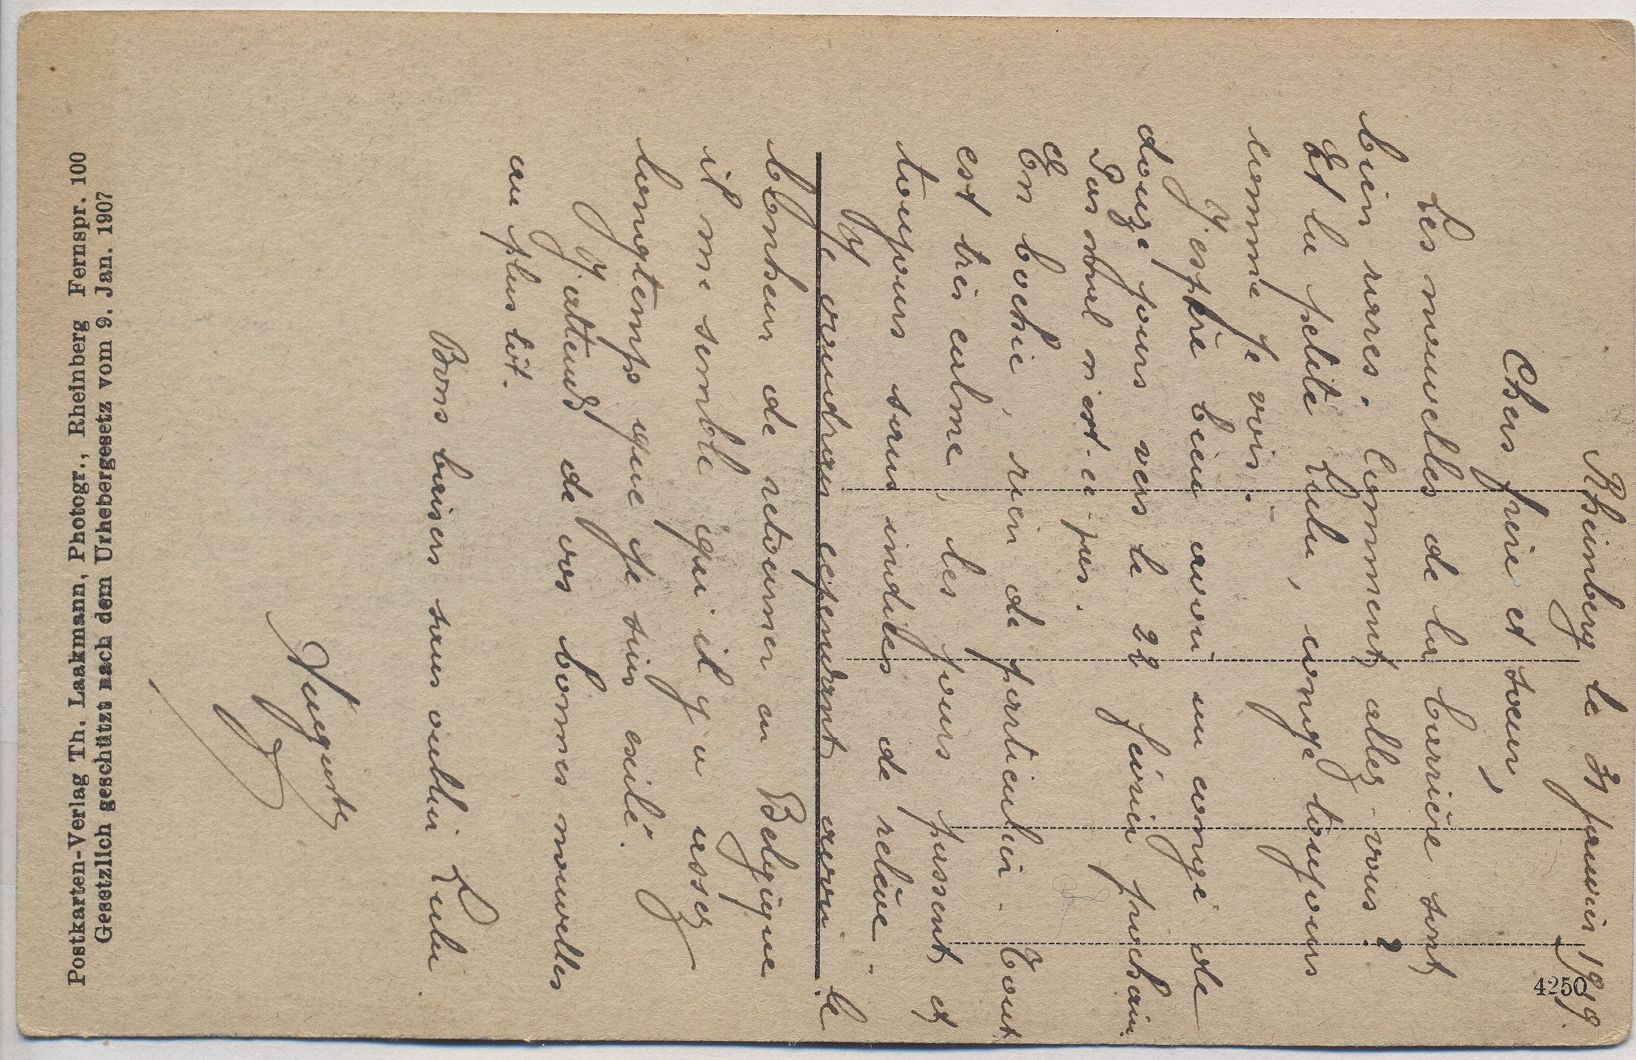 Rheinberg le 31 janvier 1919.
Chers frère et sœur,
Les nouvelles de la barrière sont
bien rares. Comment allez-vous?
Et la petite Lulu, congé toujours
comme je vois.
J'espère bien avoir un congé de
douze jours vers le 22 février prochain
si Pas mal n'est-ce pas.
En bochie, rien de particulier. Tout
est très calme, les jours passent et
toujours sans indices de relève.
Je voudrais cependant avoir le
bonheur de retourner en Belgique
il me semble qu'il y a assez
longtemps que je suis exilé.
J'attends de vos bonnes nouvelles
au plus tôt.
Bons baisers sans oublier Lulu.
Auguste
4250
Postkarten-Verlag Th. Laakmann, Photogr., Rheinberg Fernspr. 100
Gesetzlich geschützt nach dem Urhebergesetz vom 9. Jan. 1907